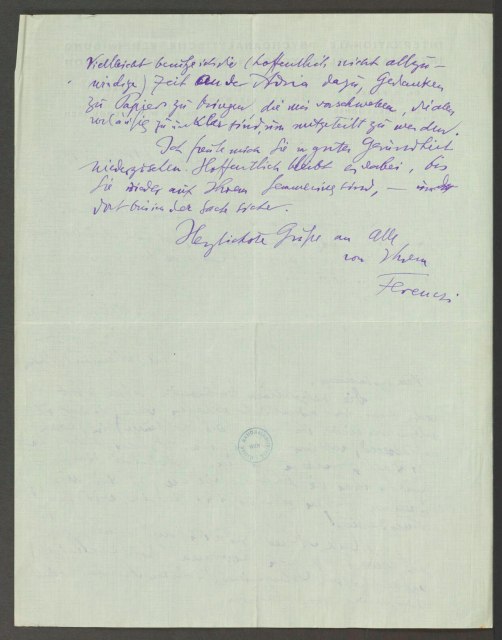 Vielleicht benütze ich die (hoffentlich nicht allzu-
windige) Zeit an der Adria dazu, Gedanken
zu Papier zu bringen die mir vorschweben, die aber
vorläufig zu unklar sind, um mitgeteilt zu werden.
Ich freute mich Sie in guter Gesundheit
wiederzusehen. Hoffentlich bleibt es dabei, bis
Sie wieder auf Ihrem Semmering sind, —
dort bin ich der Sache sicher.
Herzlichste Grüße an Alle
von Ihrem
Ferenczi